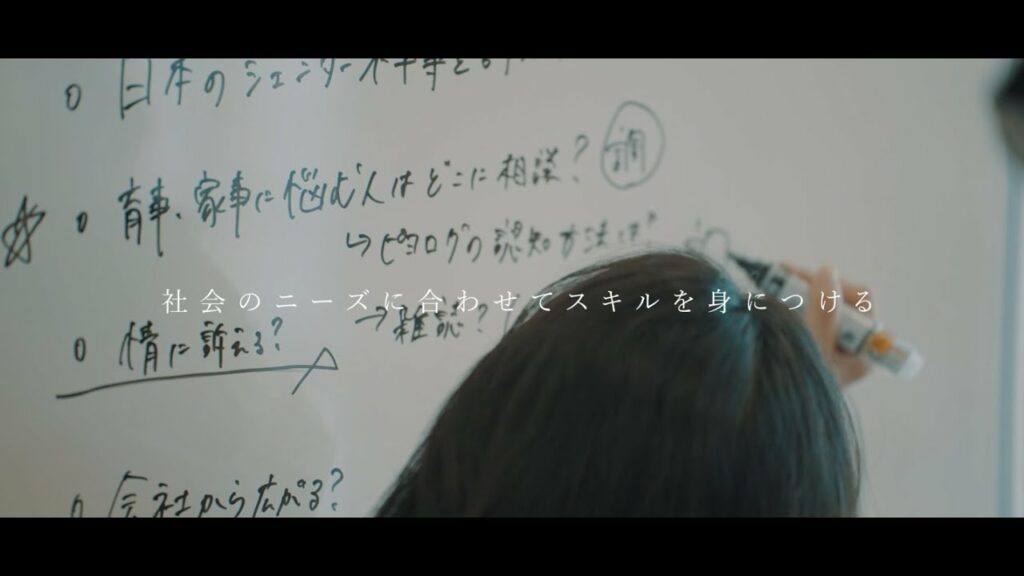 ○ 日本のジェンダー不平等
☆ ○ 育事、家事に悩む人はどこに相談? 調
↳ ピヨログの認知方法は?
社会のニーズに合わせてスキルを身につける
○ 情に訴える? → 雑誌?
○ 会社から広がる?